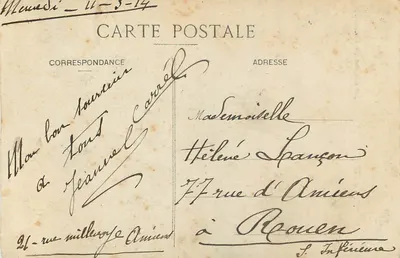 Mercredi - 11-3-14
CARTE POSTALE
CORRESPONDANCE
ADRESSE
Mon bon souvenir
à tous
Jeannel Carrél
21 - rue millevoye Amiens
Mademoiselle
Hélène Lançon
77 rue d'Amiens
à Rouen
S. Inférieure